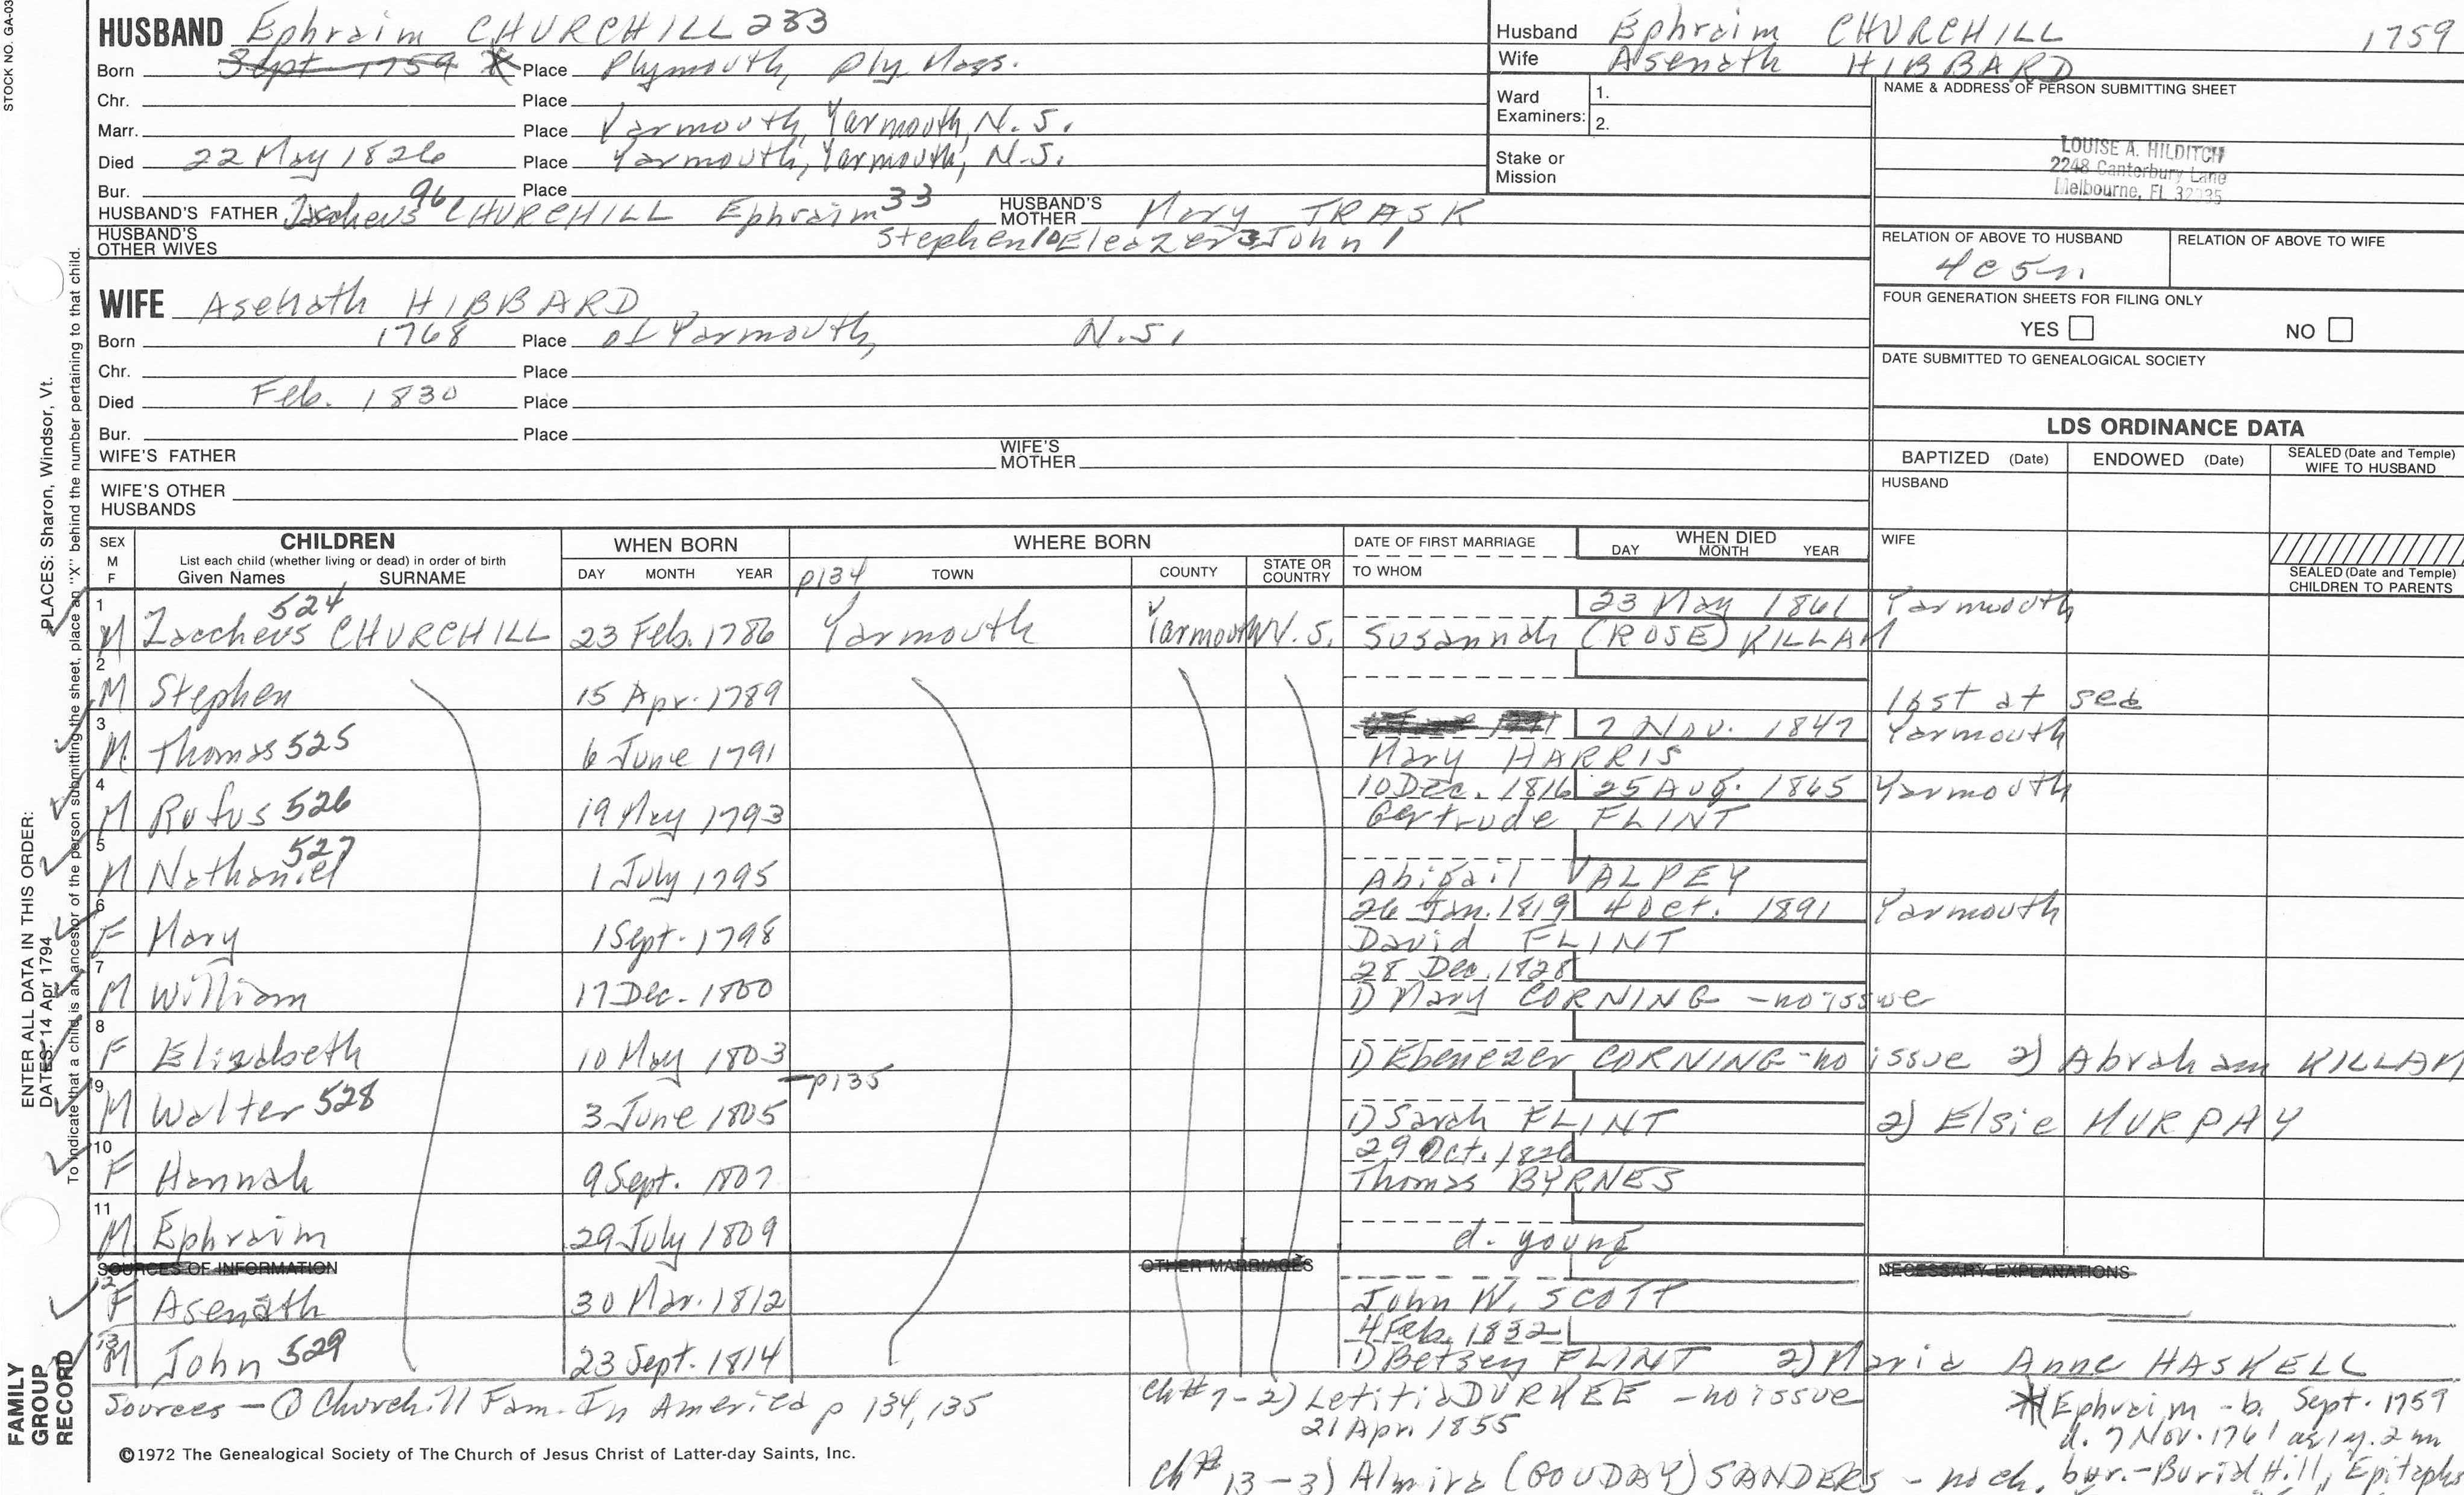 STOCK NO. GA-03
HUSBAND Ephraim CHURCHILL 233
Born Sept 1759 * Place Plymouth, Ply. Mass.
Chr. Place
Marr. Place Yarmouth, Yarmouth, N.S.
Died 22 May 1826 Place Yarmouth, Yarmouth, N.S.
Bur. Place
HUSBAND'S FATHER Zacheus 96 CHURCHILL Ephraim 33 HUSBAND'S MOTHER Mary TRASK
HUSBAND'S OTHER WIVES Stephen 10 Eleazer 3 John 1
WIFE Asenath HIBBARD
Born 1768 Place of Yarmouth, N.S.
Chr. Place
Died Feb. 1830 Place
Bur. Place
WIFE'S FATHER WIFE'S MOTHER
WIFE'S OTHER HUSBANDS
Husband Ephraim CHURCHILL 1759
Wife Asenath HIBBARD
Ward Examiners: 1.
2.
Stake or Mission
NAME & ADDRESS OF PERSON SUBMITTING SHEET
LOUISE A. HILDITCH
2248 Canterbury Lane
Melbourne, FL 32935
RELATION OF ABOVE TO HUSBAND RELATION OF ABOVE TO WIFE
4c5r
FOUR GENERATION SHEETS FOR FILING ONLY
YES NO
DATE SUBMITTED TO GENEALOGICAL SOCIETY
LDS ORDINANCE DATA
BAPTIZED (Date) ENDOWED (Date) SEALED (Date and Temple) WIFE TO HUSBAND
HUSBAND
WIFE
SEALED (Date and Temple) CHILDREN TO PARENTS
SEX M F
CHILDREN
List each child (whether living or dead) in order of birth
Given Names SURNAME
WHEN BORN
DAY MONTH YEAR
WHERE BORN
p134 TOWN COUNTY STATE OR COUNTRY
DATE OF FIRST MARRIAGE
TO WHOM
WHEN DIED
DAY MONTH YEAR
1 524 23 May 1861 Yarmouth
M Zaccheus CHURCHILL 23 Feb. 1786 Yarmouth Yarmouth N.S. Susannah (ROSE) KILLAM
2
M Stephen 15 Apr. 1789 lost at sea
3 7 Nov. 1847 Yarmouth
M Thomas 525 6 June 1791 Mary HARRIS
4 10 Dec. 1816 25 Aug. 1865 Yarmouth
M Rufus 526 19 May 1793 Gertrude FLINT
5 527
M Nathaniel 1 July 1795 Abigail VALPEY
6 26 Jan. 1819 4 Oct. 1891 Yarmouth
F Mary 1 Sept. 1798 David FLINT
7 28 Dec. 1828
M William 17 Dec. 1800 1) Mary CORNING - no issue
8
F Elizabeth 10 May 1803 1) Ebenezer CORNING - no issue 2) Abraham KILLAM
9 p135
M Walter 528 3 June 1805 1) Sarah FLINT 2) Elsie MURPAY
10 29 Oct. 1826
F Hannah 9 Sept. 1807 Thomas BYRNES
11
M Ephraim 29 July 1809 d. young
SOURCES OF INFORMATION OTHER MARRIAGES NECESSARY EXPLANATIONS
12
F Asenath 30 Mar. 1812 John W. SCOTT
13 4 Feb. 1832
M John 529 23 Sept. 1814 1) Betsey FLINT 2) Maria Anne HASKELL
Sources - ① Churchill Fam. In America p 134, 135
Ch # 7 - 2) Letitia DURKEE - no issue
21 Apr. 1855
Ch # 13 - 3) Almira (GOUDAY) SANDERS - no ch.
* Ephraim - b. Sept. 1759
d. 7 Nov. 1761 as 1 y. 2 m
bur. - Burial Hill, Epitaphs
©1972 The Genealogical Society of The Church of Jesus Christ of Latter-day Saints, Inc.
ENTER ALL DATA IN THIS ORDER:
DATES: 14 Apr 1794
PLACES: Sharon, Windsor, Vt.
To indicate that a child is an ancestor of the person submitting the sheet, place an "X" behind the number pertaining to that child.
FAMILY
GROUP
RECORD